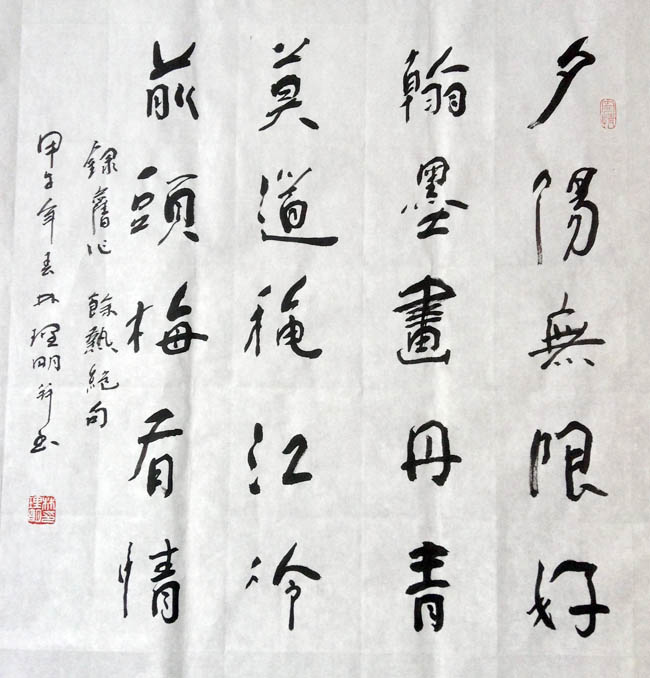 夕陽無限好
翰墨畫丹青
莫道穐江冷
前頭梅有情
錄舊作 餘熱絕句
甲午年春林理明并书